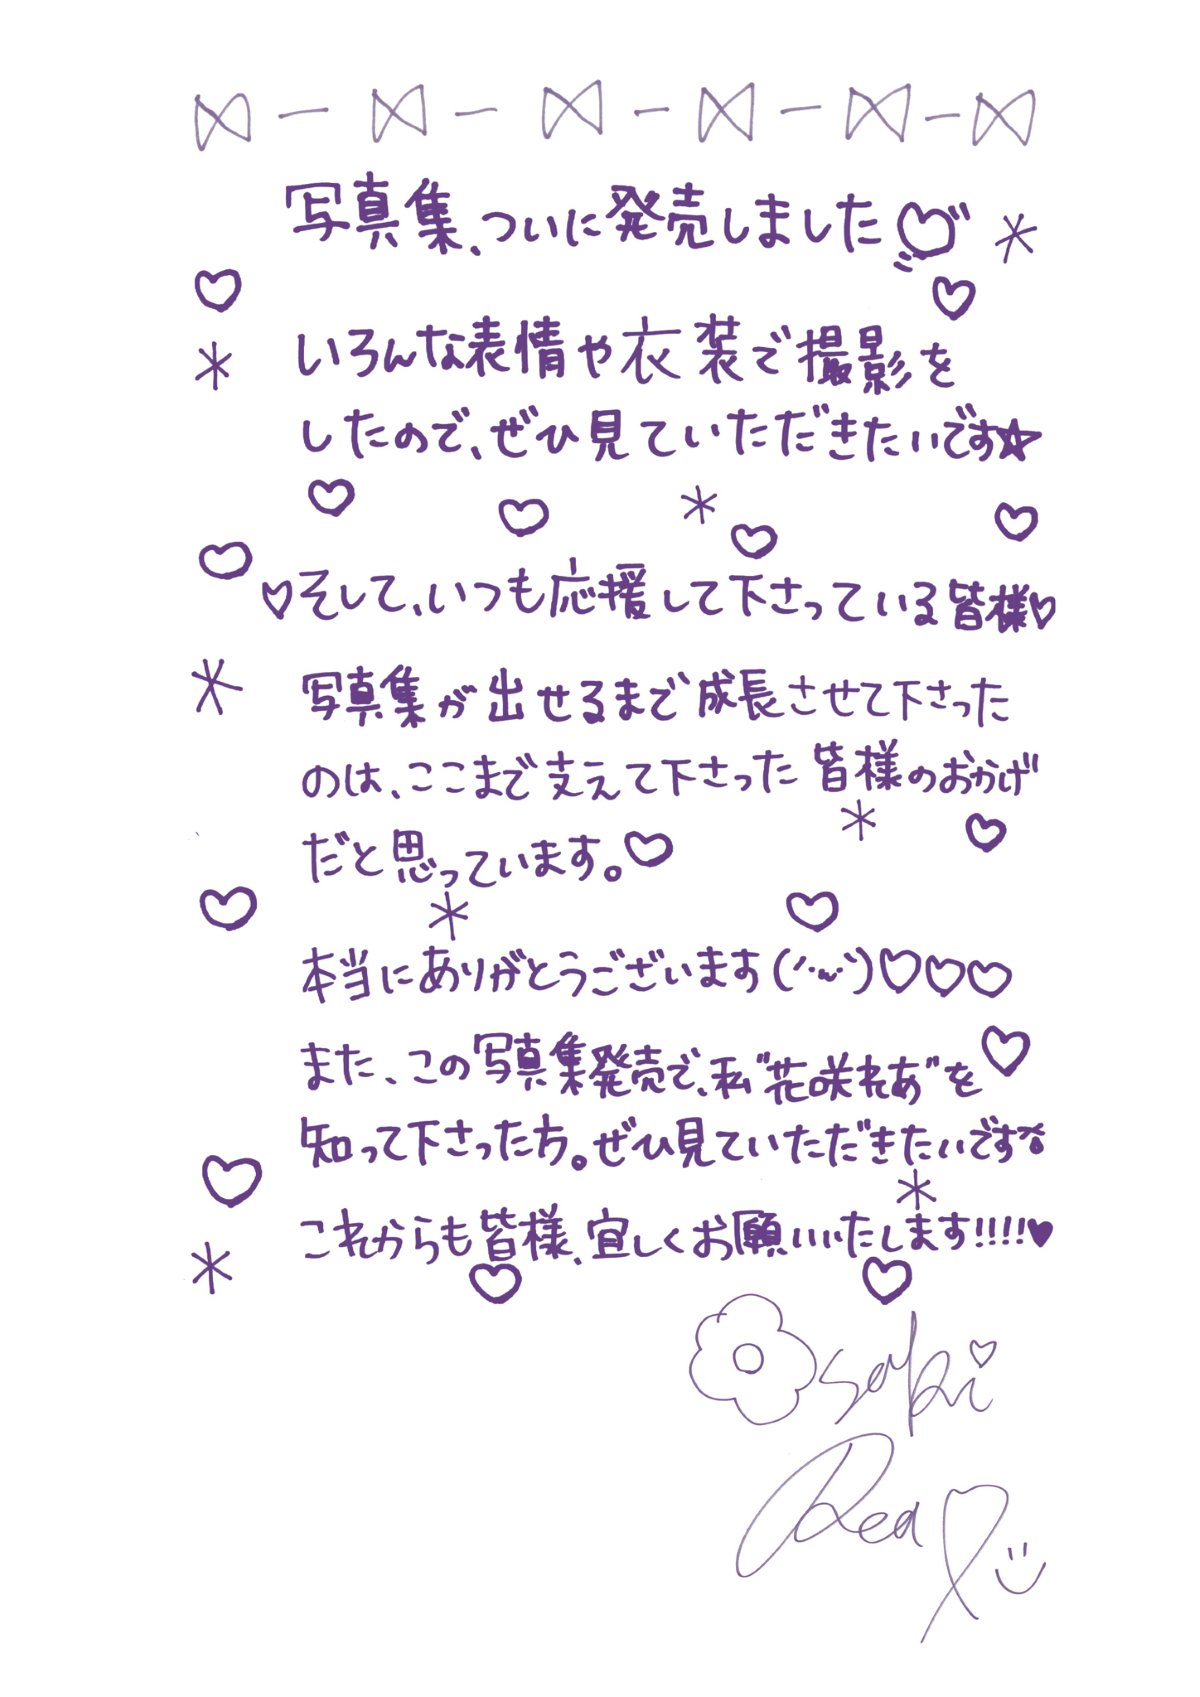 写真集、ついに発売しました♡
いろんな表情や衣装で撮影を
したので、ぜひ見ていただきたいです☆
♡そして、いつも応援して下さっている皆様♡
写真集が出せるまで成長させて下さった
のは、ここまで支えて下さった皆様のおかげ
だと思っています。♡
本当にありがとうございます(´˘`)♡♡♡
また、この写真集発売で、私"花咲れあ"を
知って下さった方。ぜひ見ていただきたいです
これからも皆様、宜しくお願いいたします!!!!♥
saki
Rea